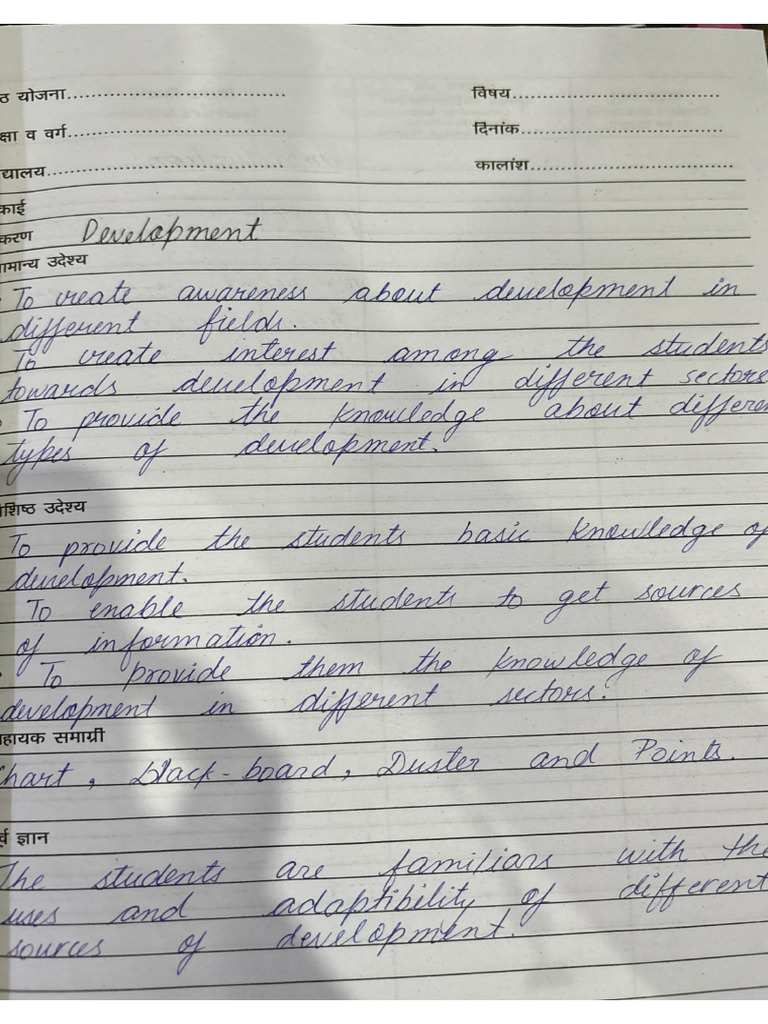 ठ योजना........................................ विषय......................................
क्षा व वर्ग........................................ दिनांक.....................................
द्यालय........................................... कालांश.....................................
काई
करण Development
ामान्य उदेश्य
To create awareness about development in
different fields.
To create interest among the students
towards development in different sectors
To provide the knowledge about differen
types of development.
शिष्ठ उदेश्य
To provide the students basic knowledge of
development.
To enable the students to get sources
of information.
To provide them the knowledge of
development in different sectors.
हायक समाग्री
Chart, black-board, Duster and Points.
र्व ज्ञान
The students are familiars with the
uses and adaptibility of different
sources of development.